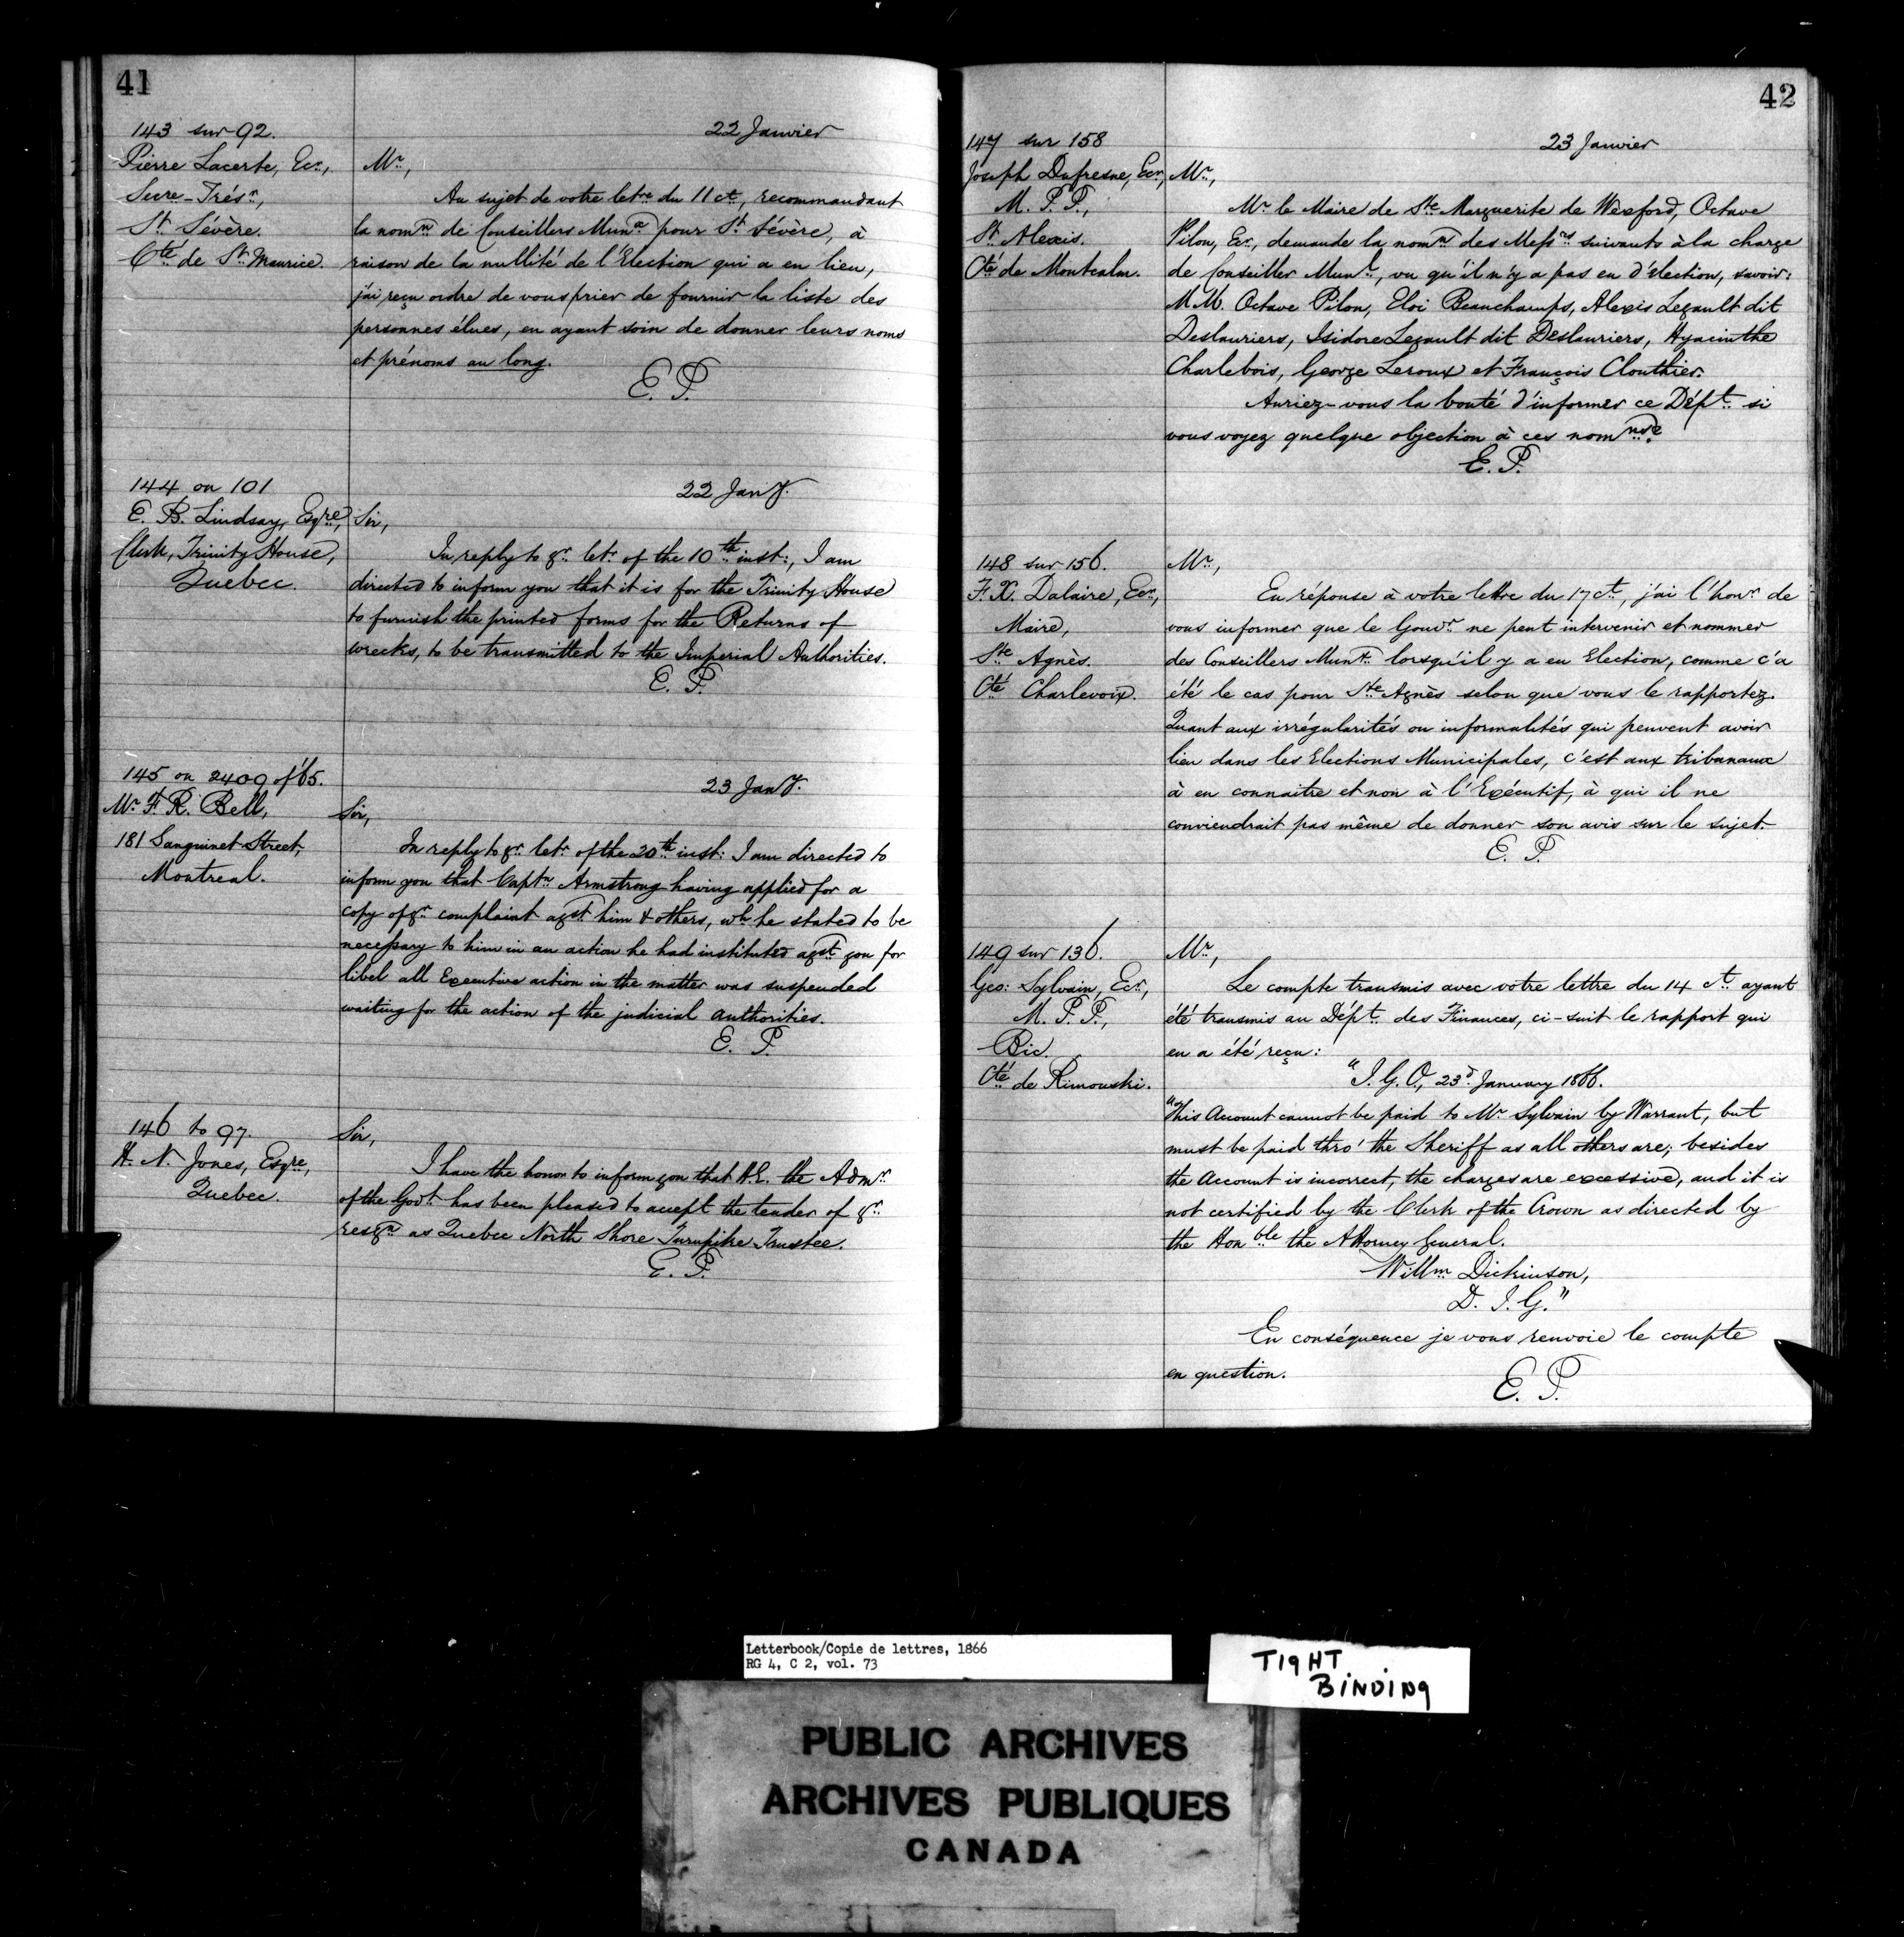 41
143 sur 92.
Pierre Lacerte, Ecr.,
Secre-Trésr.,
St. Sévère.
Cté de St. Maurice.
22 Janvier
Mr.,
Au sujet de votre letre du 11 ct., recommandant
la nomn. de Conseillers Munx. pour St. Sévère, à
raison de la nullité de l'Election qui a eu lieu,
j'ai reçu ordre de vous prier de fournir la liste des
personnes élues, en ayant soin de donner leurs noms
et prénoms au long.
E. P.
144 on 101
E. B. Lindsay, Esqre,
Clerk, Trinity House,
Quebec.
22 Jany.
Sir,
In reply to yr. letr. of the 10th inst:, I am
directed to inform you that it is for the Trinity House
to furnish the printed forms for the Returns of
wrecks, to be transmitted to the Imperial Authorities.
E. P.
145 on 2409 of '65.
Mr. F. R. Bell,
181 Sanguinet Street,
Montreal.
23 Jany.
Sir,
In reply to yr. letr. of the 20th inst: I am directed to
inform you that Captn. Armstrong having applied for a
copy of yr. complaint agst. him & others, wh. he stated to be
necessary to him in an action he had instituted agst. you for
libel all Executive action in the matter was suspended
waiting for the action of the judicial authorities.
E. P.
146 to 97.
H. N. Jones, Esqre,
Quebec.
Sir,
I have the honor to inform you that H.E. the Admr.
of the Govt. has been pleased to accept the tender of yr.
resgn. as Quebec North Shore Turnpike Trustee.
E. P.
42
147 sur 158
Joseph Dufresne, Ecr,
M. P. P.,
St. Alexis.
Cté de Montcalm.
23 Janvier
Mr.,
Mr. le Maire de Ste. Marguerite de Wexford, Octave
Pilon, Ecr., demande la nomn. des Messrs. suivants à la charge
de Conseiller Munl., vu qu'il n'y a pas eu d'élection, savoir:
M.M. Octave Pilon, Eloi Beauchamps, Alexis Legault dit
Deslauriers, Isidore Legault dit Deslauriers, Hyacinthe
Charlebois, George Leroux et François Clouthier.
Auriez-vous la bonté d'informer ce Dépt. si
vous voyez quelque objection à ces nomns.
E. P.
148 sur 156.
F. X. Dalaire, Ecr.,
Maire,
Ste Agnès.
Cté Charlevoix.
Mr.,
En réponse à votre lettre du 17 ct., j'ai l'honr. de
vous informer que le Gouvr. ne peut intervenir et nommer
des Conseillers Munx. lorsqu'il y a eu Election, comme c'a
été le cas pour Ste. Agnès selon que vous le rapportez.
Quant aux irrégularités ou informalités qui peuvent avoir
lieu dans les Elections Municipales, c'est aux tribunaux
à en connaître et non à l'Exécutif, à qui il ne
conviendrait pas même de donner son avis sur le sujet.
E. P.
149 sur 136.
Geo: Sylvain, Ecr.,
M. P. P.,
Bic.
Cté de Rimouski.
Mr.,
Le compte transmis avec votre lettre du 14 ct. ayant
été transmis au Dépt. des Finances, ci-suit le rapport qui
en a été reçu:
"I. G. O., 23d. January 1866.
"This Account cannot be paid to Mr. Sylvain by Warrant, but
must be paid thro' the Sheriff as all others are; besides
the Account is incorrect, the charges are excessive, and it is
not certified by the Clerk of the Crown as directed by
the Honble the Attorney General.
Willm. Dickinson,
D. I. G."
En conséquence je vous renvoie le compte
en question.
E. P.
Letterbook/Copie de lettres, 1866
RG 4, C 2, vol. 73
TIGHT
BINDING
PUBLIC ARCHIVES
ARCHIVES PUBLIQUES
CANADA